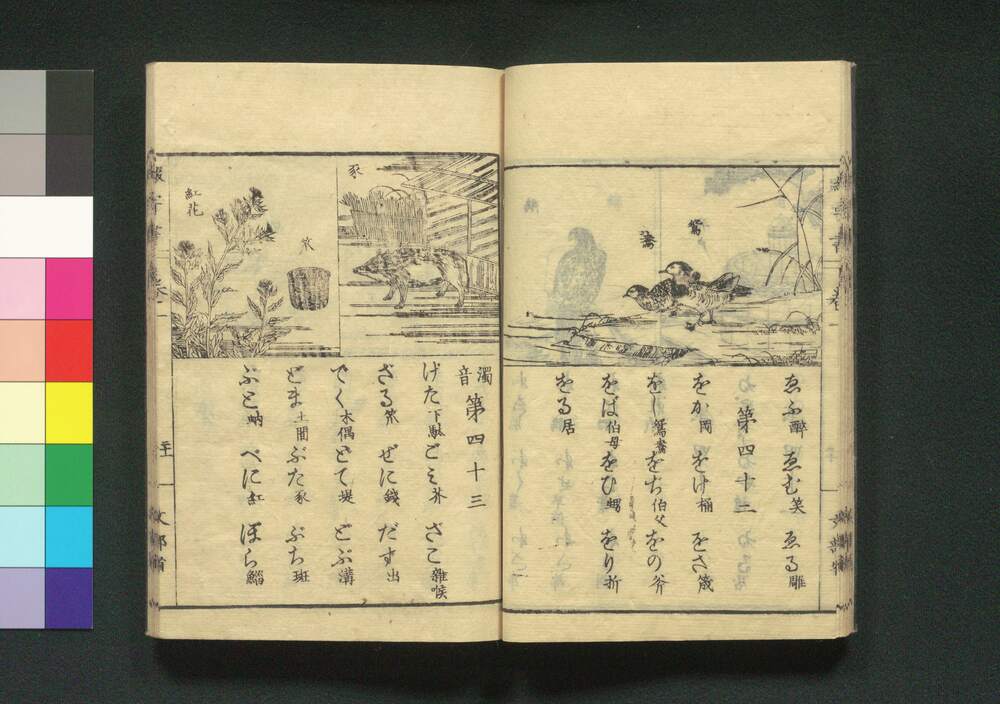 鴛
鴦
ゑふ醉 ゑむ笑 ゑる雕
第四十二
をか岡 をけ桶 をさ筬
をし鴛鴦 をぢ伯父 をの斧
をば伯母 をひ甥 をり折
をる居
豕
笊
紅花
濁音 第四十三
げた下駄 ごみ芥 ざこ雜喉
ざる笊 ぜに錢 だす出
でく木偶 どて堤 どぶ溝
どま土間 ぶた豕 ぶち斑
ぶと蚋 べに紅 ぼら鯔
文部省